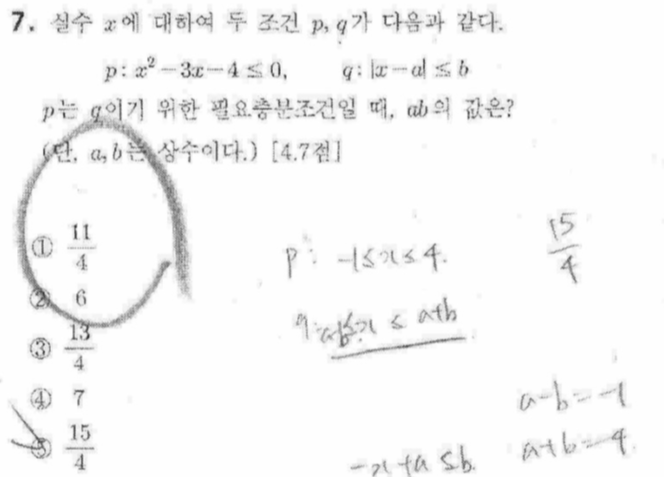 7. 실수 x에 대하여 두 조건 p, q가 다음과 같다.
p: x² − 3x − 4 ≤ 0,   q: |x − a| ≤ b
p는 q이기 위한 필요충분조건일 때, ab의 값은?
(단, a, b는 상수이다.) [4.7점]
① 11/4
② 6
③ 13/4
④ 7
⑤ 15/4
p: -1≤x≤4.
q: a-b≤x≤a+b
15/4
a-b=-1
a+b=4.
-x+a≤b.